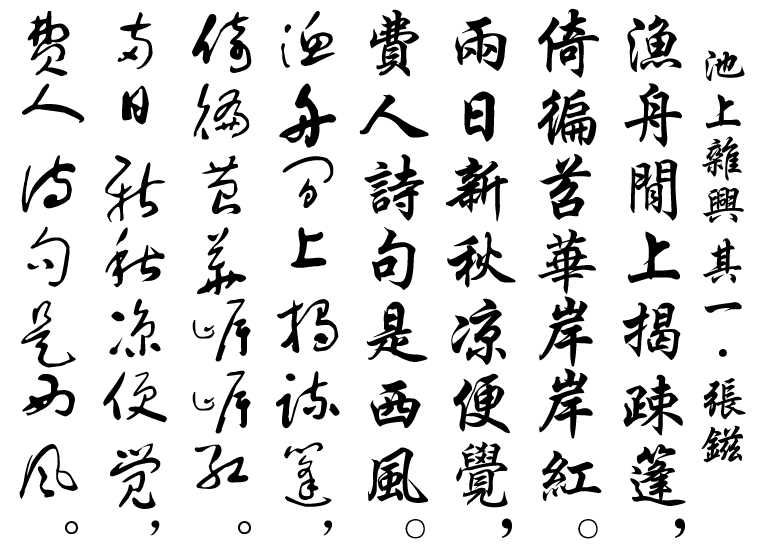 池上雜興其一・張鎡
漁舟閒上揭疎蓬，
倚徧苕華岸岸紅。
兩日新秋凉便覺，
費人詩句是西風。
漁舟閒上揭疎篷，
倚徧苕華岸岸紅。
兩日新秋凉便覺，
費人詩句是西風。